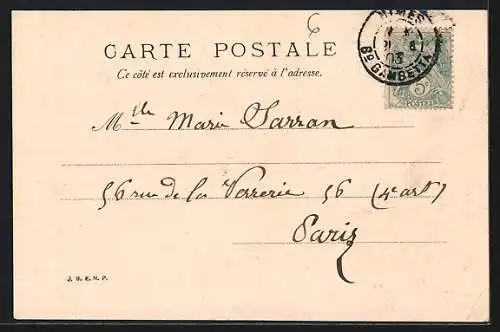 6
CARTE POSTALE
Ce côté est exclusivement réservé à l'adresse.
NIMES
03
Bᴅ GAMBETTA
5ᶜ
POSTES
Mˡˡᵉ Marie Sarran
56 rue de la Verrerie 56 (4ᵉ arrᵗ)
Paris